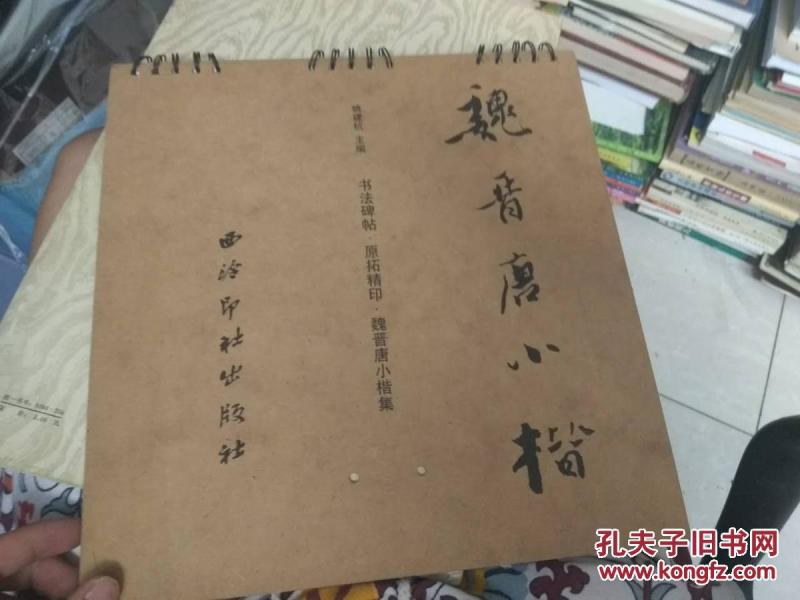 魏晋唐小楷
姚建杭 主编
书法碑帖·原拓精印·魏晋唐小楷集
西泠印社出版社
孔夫子旧书网
www.kongfz.com